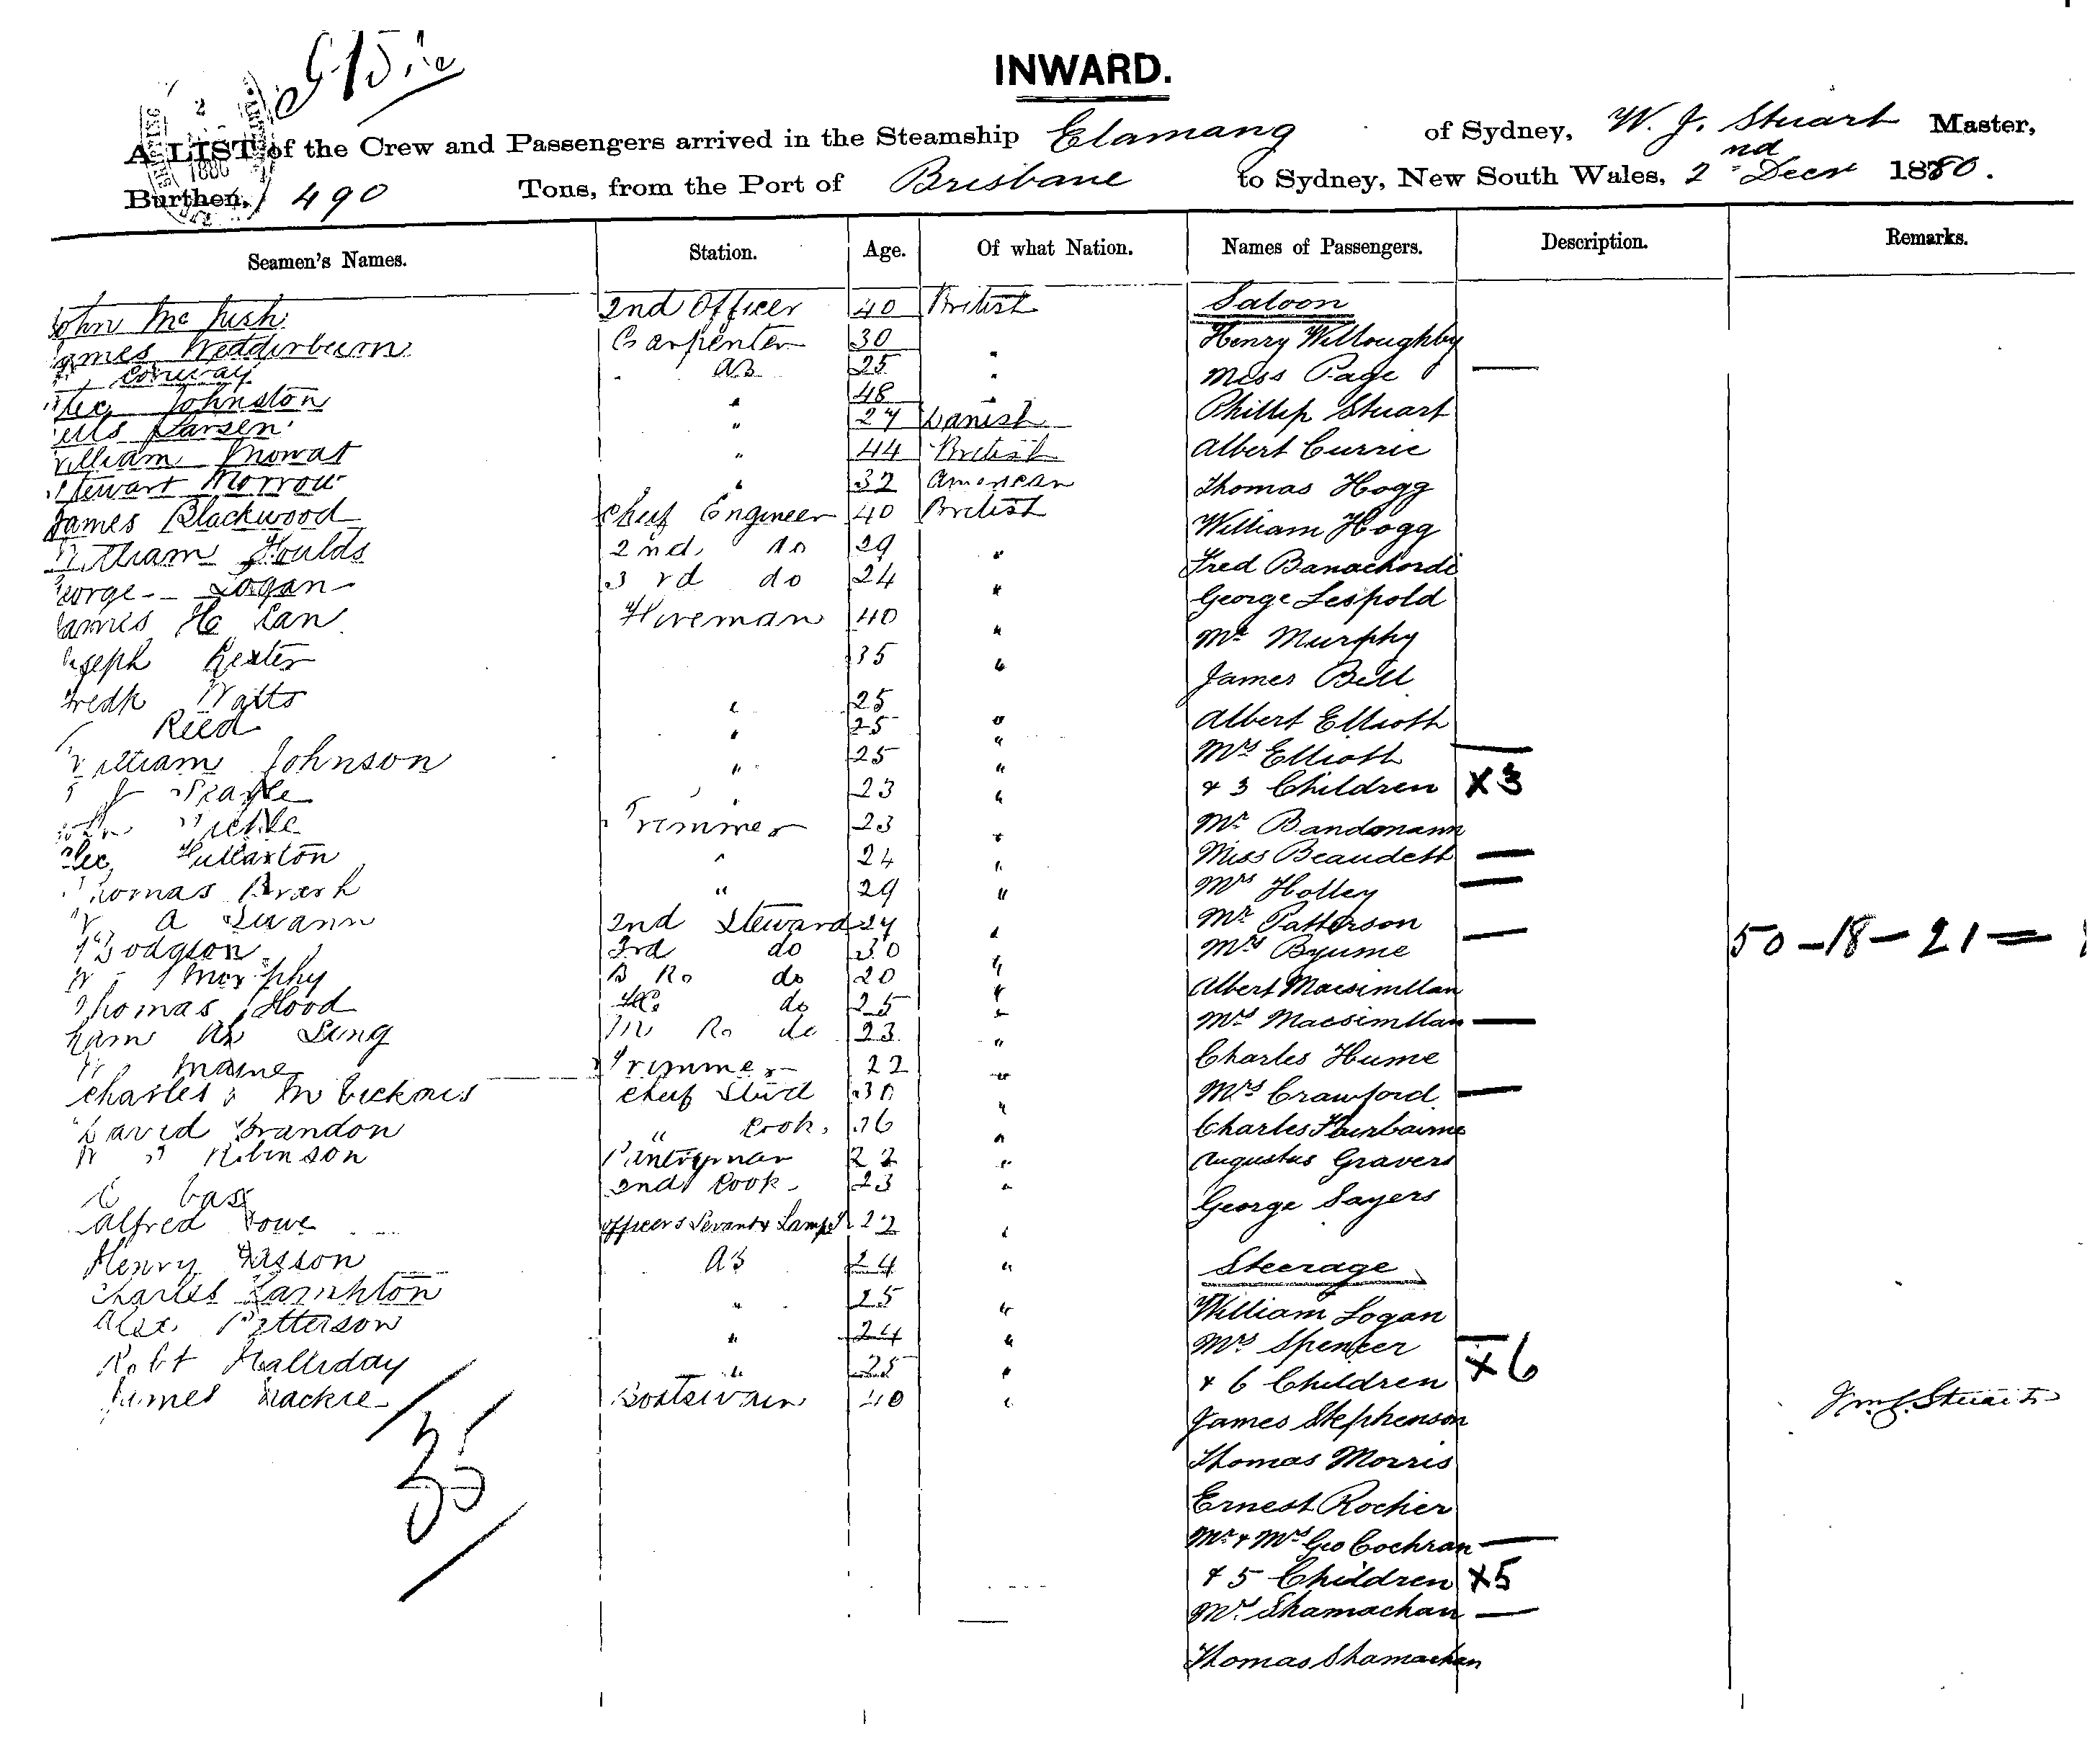 G15
INWARD.
A LIST of the Crew and Passengers arrived in the Steamship Elamang of Sydney, W. J. Stuart Master,
Burthen, 490 Tons, from the Port of Brisbane to Sydney, New South Wales, 2nd Decr 1880.
Seamen's Names. Station. Age. Of what Nation. Names of Passengers. Description. Remarks.
John Mc 2nd Officer 40 British Saloon
James Wedderburn Carpenter 30 " Henry Willoughby
Conway AB 25 " Miss Page —
Alec Johnston " 48 " Phillip Stuart
Neils Larsen " 27 Danish Albert Currie
William Mowat " 44 British Thomas Hogg
Stewart Morrow " 32 American William Hogg
James Blackwood Chief Engineer 40 British Fred
William Foulds 2nd do 29 " George Lespold
George Logan 3rd do 24 " Mr Murphy
James Fireman 40 " James Bell
Joseph 35 " Albert Elliott
Fredk Watts " 25 " Mrs Elliott —
Reed " 25 " & 3 Children X3
William Johnson " 25 " Mr Bandmann
" 23 " Miss Beaudett —
Trimmer 23 " Mrs Holley —
Alec Fullarton " 24 " Mr Patterson
Thomas " 29 " Mrs Byume —
A Swann 2nd Steward 24 " Albert Macsimllan
Hodgson 3rd do 30 " Mrs Macsimllan —
W Morphy B R. do 20 " Charles Hume
Thomas Hood do 25 " Mrs Crawford —
Ham Ah Sung M R. do 23 " Charles
W Trimmer 22 " Augustus Gravers
Charles Chief Stwd 30 " George Sayers
David Brandon " Cook, 36 " Steerage
W Robinson Pantryman 22 " William Logan
2nd Cook 23 " Mrs Spencer —
Alfred Officers Servant & Lamps 22 " & 6 Children X6
Henry AB 24 " James Stephenson
Charles Lambton " 25 " Thomas Morris
Alec Patterson " 24 " Ernest Rocher
Robt Halliday " 25 " Mr & Mrs Geo Cochran —
James Mackie Boatswain 40 " & 5 Children X5
Mrs Shamachan —
Thomas Shamachan
35
50 — 18 — 21 =
Wm J. Stuart